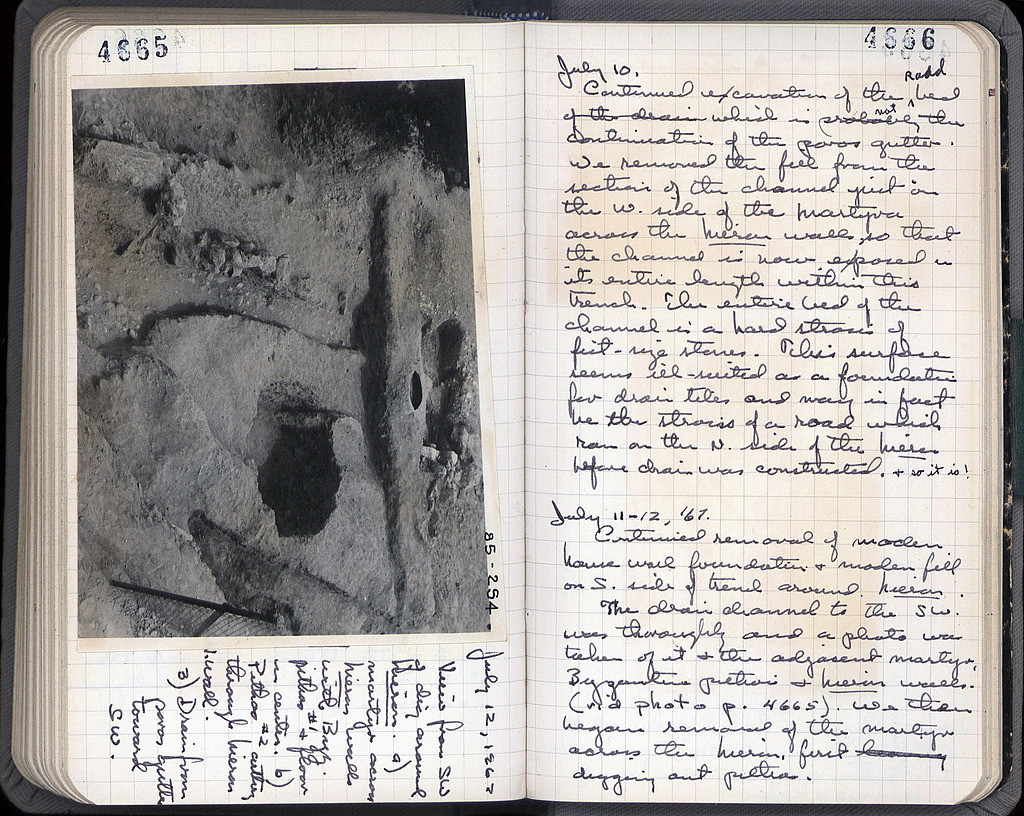 4665
85-254
July 12, 1967
View from SW
of dig around
hieron. a)
martyra across
hieron walls
with Byz.
pithos #1 & floor
in center. b)
Pithos #2 cutting
through hieron
wall.
3) Drain from
poros gutter
toward
SW.
4666
July 10.
Continued excavation of the road bed
of the drain which is probably not the
continuation of the poros gutter.
We removed the fill from the
section of the channel just in
the W. side of the martyra
across the hieron walls, so that
the channel is now exposed in
its entire length within this
trench. The entire bed of the
channel is a hard strosis of
fist-size stones. This surface
seems ill-suited as a foundation
for drain tiles and may in fact
be the strosis of a road which
ran on the N. side of the hieron
before drain was constructed. & so it is!
July 11-12, '67.
Continued removal of modern
house wall foundation & modern fill
on S. side of trench around hieron.
The drain channel to the SW.
was thoroughly and a photo was
taken of it & the adjacent martyra,
Byzantine pithoi & hieron walls.
(vid photo p. 4665). We then
began removal of the martyra
across the hieron, first
digging out pithoi.